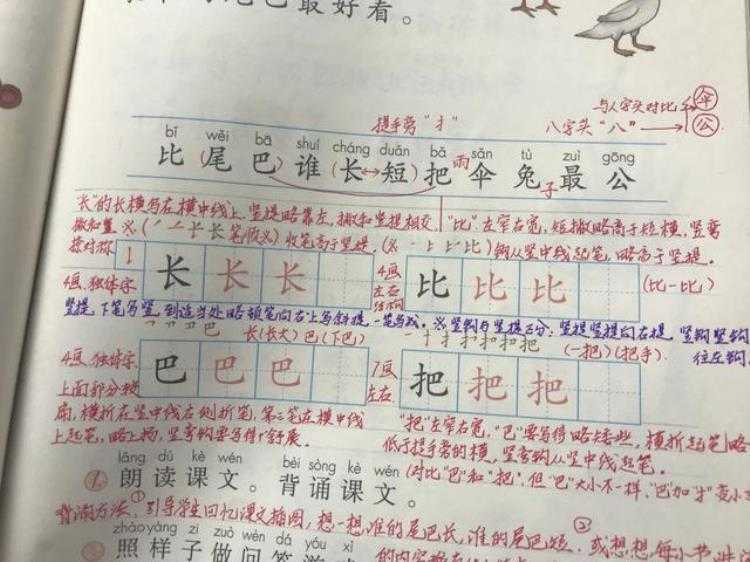 最好看。
与人字头对比 伞
提手旁“扌” 八字头“八” 公
bǐ wěi bā shuí cháng duǎn bǎ sǎn tù zuì gōng
比(尾巴)谁(长↔短)把雨伞兔子最公
长”的长横写在横中线上,竖提略靠左,撇和竖提相交 “比”左窄右宽,短撇略高于短横,竖弯
撇和置 长长笔顺 收笔高于竖提. 上 比 比)钩从竖中线起笔,略高于竖提.
捺对称
长 长 长 比 比 比
4画.独体字 4画 左右结构 (比一比)
竖提,下笔写竖,到适当处略顿笔向右上写斜提,一笔写成.※竖钩与竖提区分:竖提竖提向右提 竖钩竖钩
往左钩
巴 长(长大)巴(下巴) 一 扌 把 (一把)(把手)
4画 独体字
巴 巴 巴 把 把 把
7画
左右
上面部分稍
扁,横折在竖中线右侧折笔,第三笔在横中线 “把”左窄右宽,“巴”要写得略矮些,横折起笔略
上起笔,略上扬,竖弯钩要写得舒展. 低于提手旁的横,竖弯钩从竖中线起笔.
lǎng dú kè wén bèi sòng kè wén
1 朗读课文。背诵课文。 (对比“巴”和“把”.但“巴”大小不一样,“巴”加“扌”变小
背诵方法 ①引导学生回忆课文插图,想一想,谁的尾巴长,谁的尾巴短. ②或想想,每小节
zhào yàng zi zuò wèn dá yóu xì
照样子做问答游
的内容